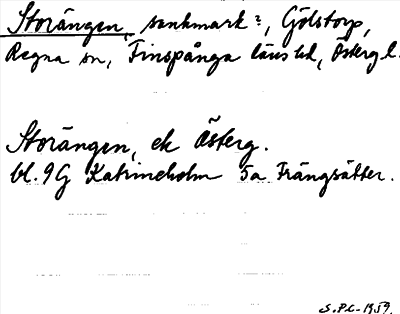 Storängen, sankmark?, Gölstorp,
Regna sn, Finspånga läns hd, Östergl.
Storängen, ek Österg.
bl. 9G Katrineholm 5a Frängsätter.
S.P.C. 1959.